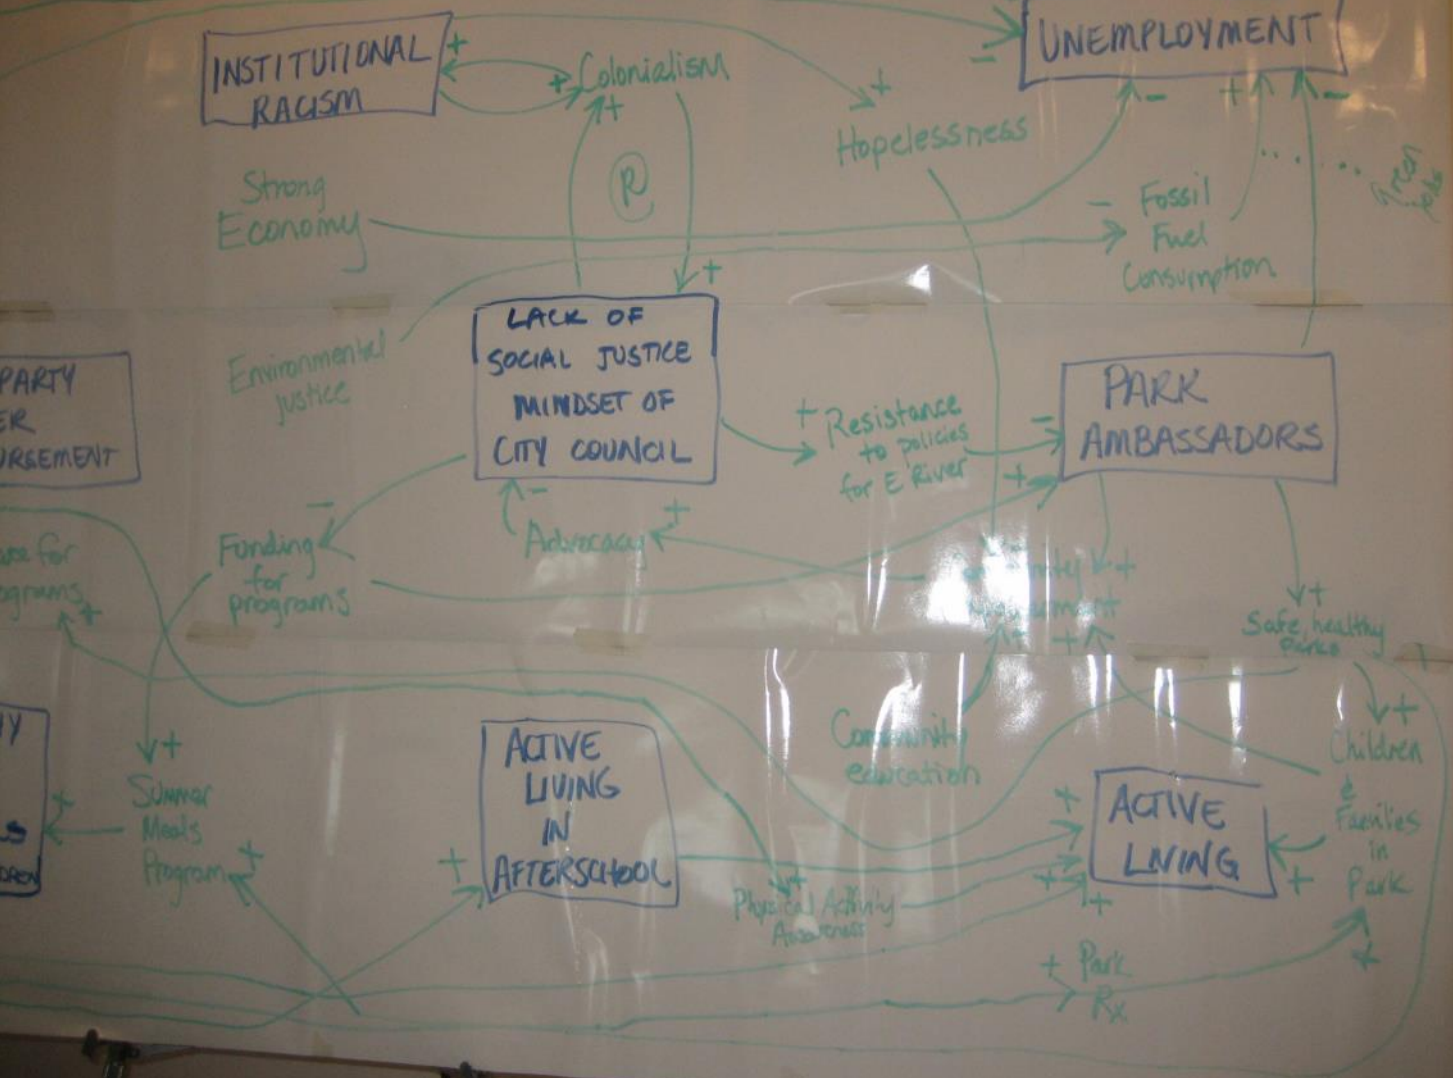 INSTITUTIONAL
RACISM
+
+
Colonialism
+
R
+
+
Hopelessness
UNEMPLOYMENT
-
-
+
-
Strong
Economy
-
Fossil
Fuel
Consumption
Green
jobs
Environmental
justice
LACK OF
SOCIAL JUSTICE
MINDSET OF
CITY COUNCIL
+
Resistance
to policies
for E River
-
+
PARK
AMBASSADORS
PARTY
ER
URSEMENT
-
Funding
for
programs
-
Advocacy
+
for
ograms
+
+
+
+
+
Safe, healthy
Parks
+
Summer
Meals
Program
+
+
+
ACTIVE
LIVING
IN
AFTERSCHOOL
Community
education
+
Physical Activity
Awareness
+
+
+
ACTIVE
LIVING
+
+
Children
&
Families
in
Park
+
+
Park
Rx